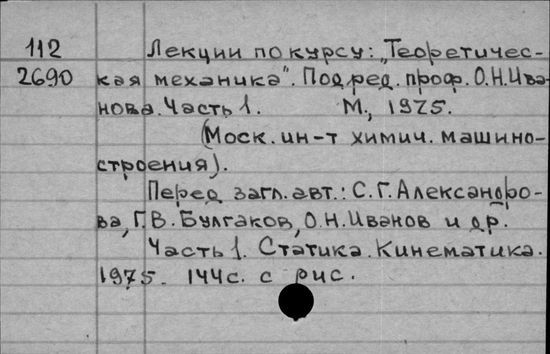 112 Лекции по курсу: „Теоретичес-
2690 кая механика". Под ред. проф. О.Н.Ива-
нова. Часть 1. М., 1975.
(Моск. ин-т химич. машино-
строения).
Перед загл. авт.: С.Г.Александро-
ва, Г.В.Булгаков, О.Н.Иванов и др.
Часть 1. Статика. Кинематика.
1975. 144с. с рис.